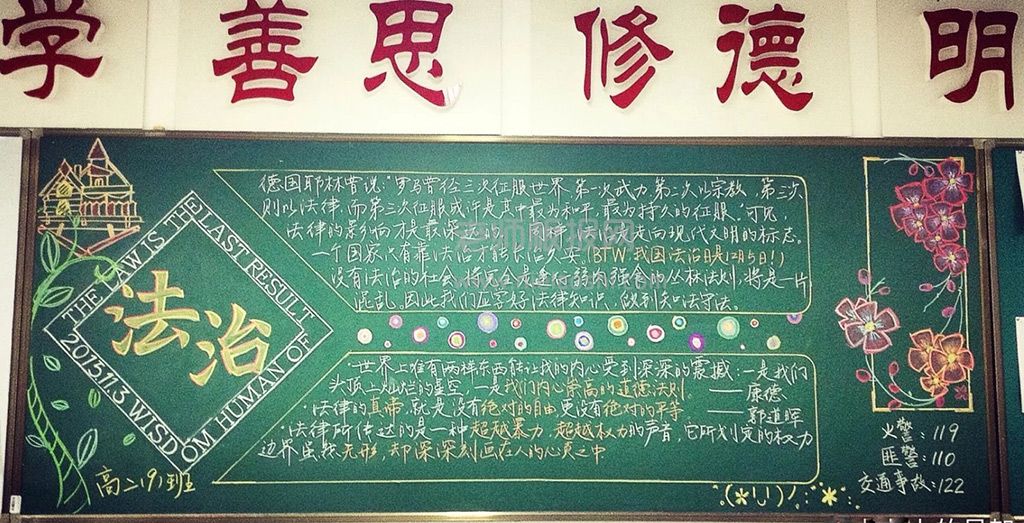 学善思修德明
THE LAW IS THE LAST RESULT OF HUMAN WISDOM
2015.11.3
法治
德国耶林曾说:"罗马曾经三次征服世界,第一次武力,第二次以宗教,第三次
则以法律,而第三次征服或许是其中最为和平,最为持久的征服。"可见,
法律的影响才是最深远的。
走向现代文明的标志。
一个国家只有靠法治才能长治久安。(BTW 我国法治日是12月5日!)
没有法治的社会,将完全是遵行弱肉强食的丛林法则,将是一片
混乱。因此,我们应学好法律知识,做到知法守法。
"世界上唯有两样东西能让我的内心受到深深的震撼:一是我们
头顶上灿烂的星空,一是我们内心崇高的道德法则。 ——康德
·法律的真帝,就是没有绝对的自由,更没有绝对的平等 ——郭道晖
·法律所传达的是一种超越暴力,超越权力的声音,它所划定的权力
边界虽然无形,却深深刻画在人的心灵之中
高二(9)班
火警:119
匪警:110
交通事故:122